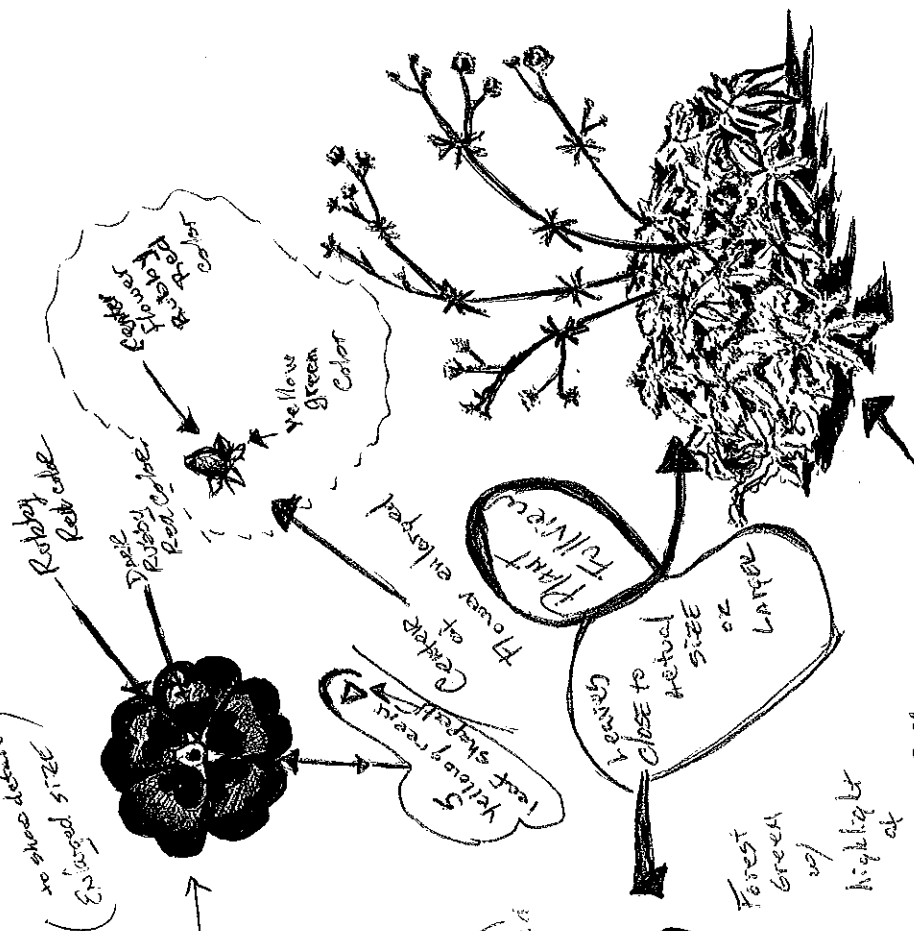 to show details
Enlarged size
Rubby
Red color
Dark
Rubby
Red color
Center
Flower
Rubby Red
color
yellow
green
color
Center
of
Flower enlarged
5
yellowy green
leaf shaped
Plant
Full view
Leaves
close to
actual
size
or
Larger
Forest
Green
w/
highlight
of